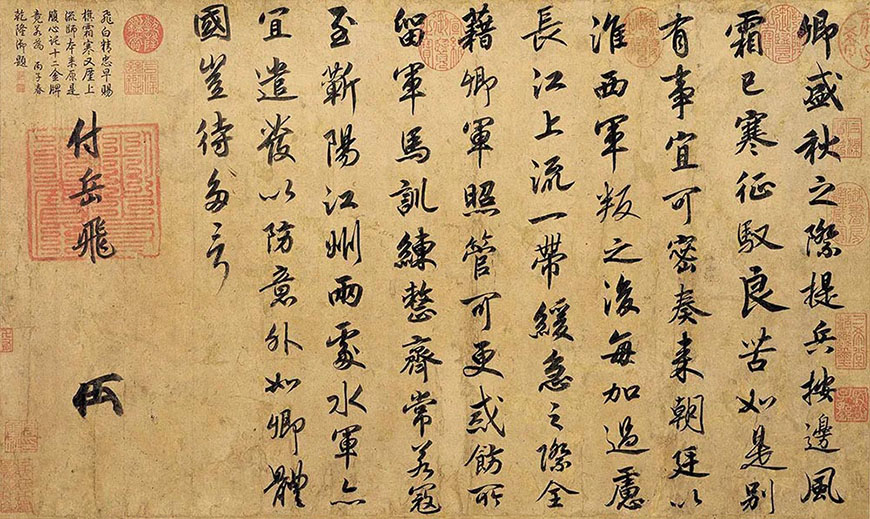 卿盛秋之際提兵按邊風
霜已寒征馭良苦如是別
有事宜可密奏來朝廷以
淮西軍叛之後每加過慮
長江上流一帶緩急之際全
藉卿軍照管可更戒飭所
留軍馬訓練整齊常若寇
至蘄陽江州兩處水軍亦
宜遣發以防意外如卿體
國豈待多言
付岳飛
飛白精忠早賜
旗霜寒又厪上
流師本來原是
腹心託十二金牌
竟若為 丙子春
乾隆御題